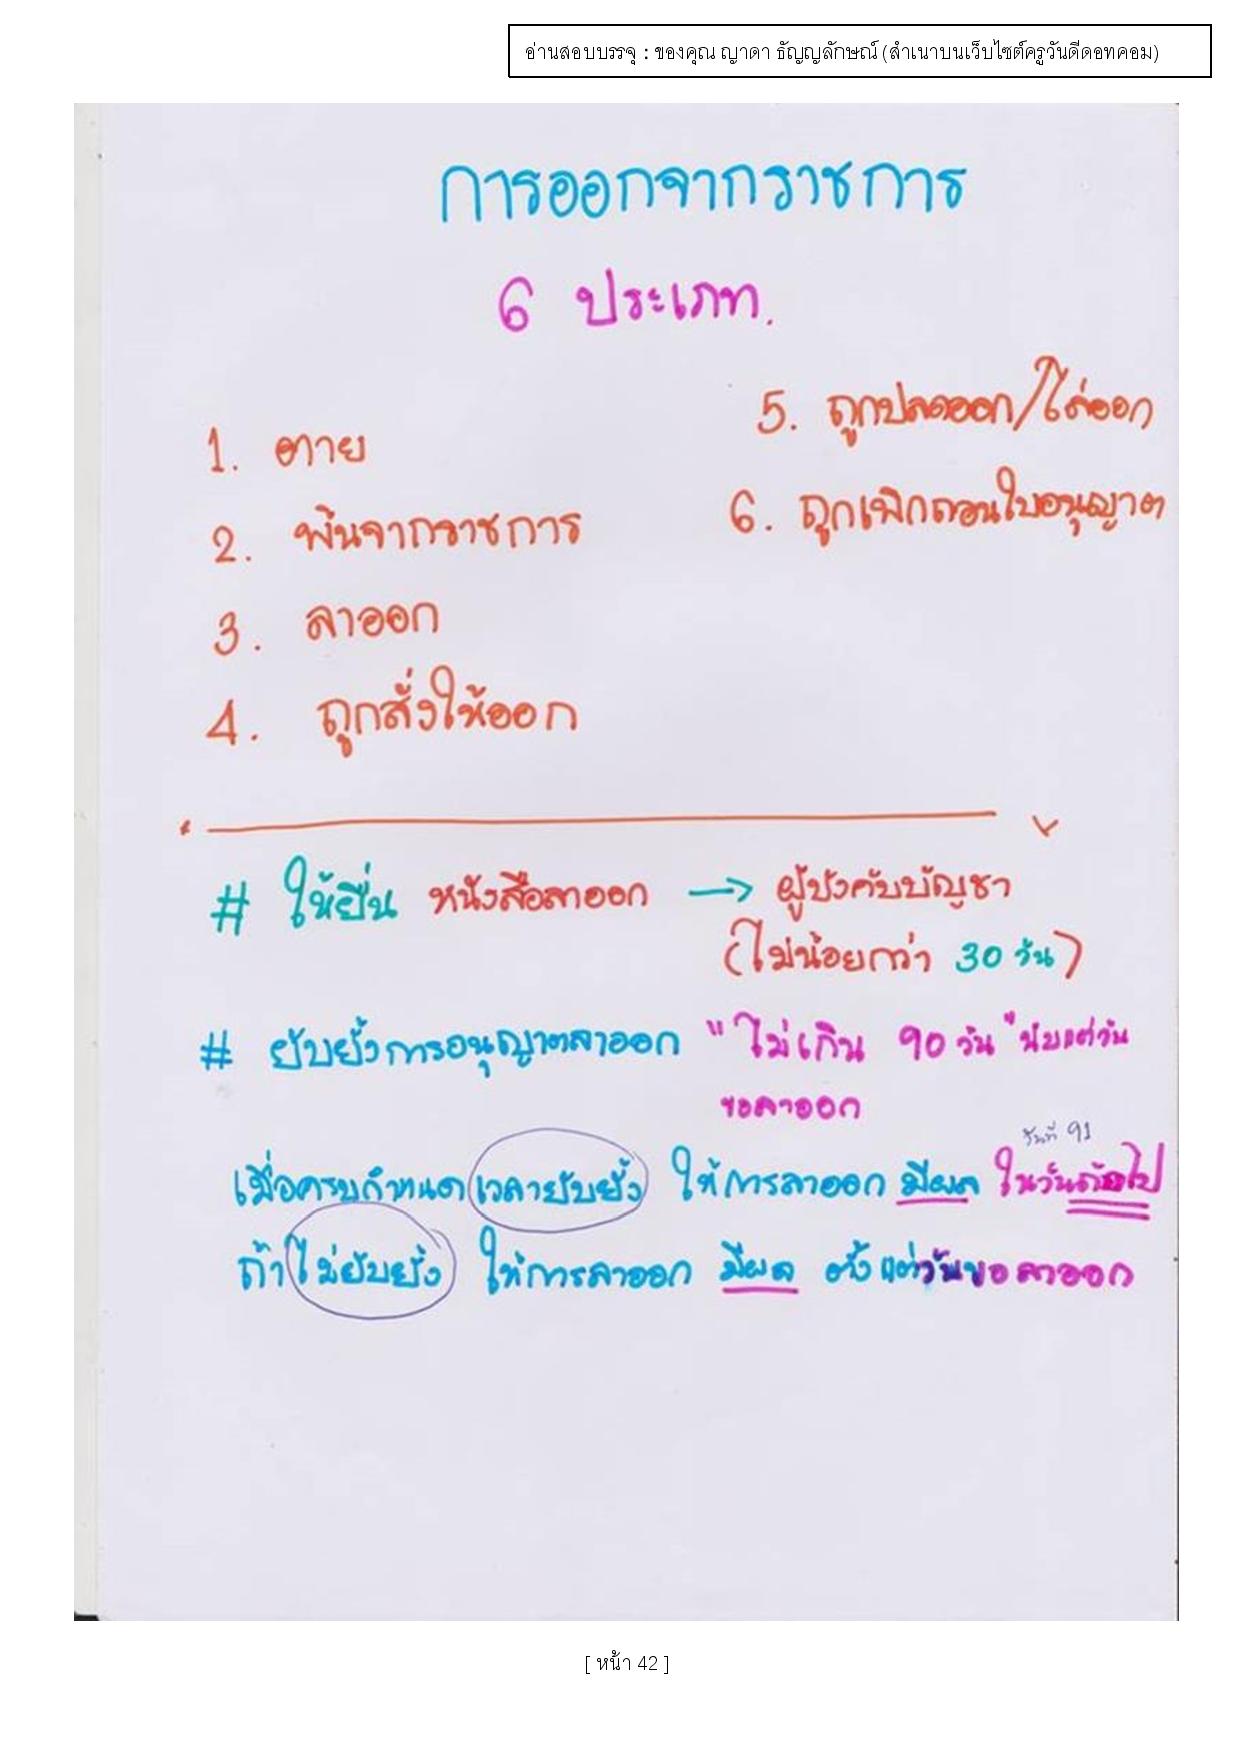 อ่านสอบบรรจุ : ของคุณ ญาดา ธัญญลักษณ์ (สำเนาบนเว็บไซต์ครูวันดีดอทคอม)
การออกจากราชการ
6 ประเภท.
1. ตาย
2. พ้นจากราชการ
3. ลาออก
4. ถูกสั่งให้ออก
5. ถูกปลดออก/ไล่ออก
6. ถูกเพิกถอนใบอนุญาต
# ให้ยื่น หนังสือลาออก → ผู้บังคับบัญชา
(ไม่น้อยกว่า 30 วัน)
# ยับยั้งการอนุญาตลาออก "ไม่เกิน 90 วัน" นับแต่วัน
ขอลาออก
วันที่ 91
เมื่อครบกำหนดเวลายับยั้ง ให้การลาออก มีผล ในวันถัดไป
ถ้าไม่ยับยั้ง ให้การลาออก มีผล ตั้งแต่วันขอลาออก
[ หน้า 42 ]